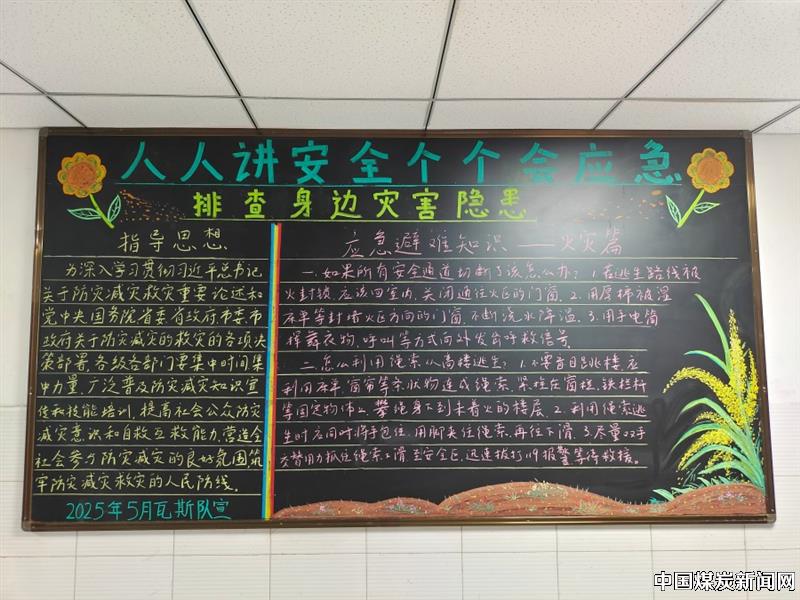 人人讲安全个个会应急
排查身边灾害隐患
指导思想
为深入学习贯彻习近平总书记
关于防灾减灾救灾重要论述和
党中央国务院省委省政府市委、市
政府关于防灾减灾的救灾的各项决
策部署,各级各部门要集中时间集
中力量,广泛普及防灾减灾知识宣
传和技能培训,提高社会公众防灾
减灾意识和自救互救能力,营造全
社会参与防灾减灾的良好氛围,筑
牢防灾减灾救灾的人民防线。
2025年5月瓦斯队宣
应急避难知识——火灾篇
一、如果所有安全通道切断了该怎么办? 1.在逃生路线被
火封锁,应该回室内,关闭通往火区的门窗。2.用厚棉被湿
床单等封堵火区方向的门窗,不断浇水降温。3.用手电筒
挥舞衣物,呼叫等方式向外发出呼救信号。
二、怎么利用绳索从高楼逃生? 1.不要盲目跳楼,应
利用床单,窗帘等条状物连成绳索,紧拴在窗框,铁栏杆
等固定物体上,攀绳身下到未着火的楼层。2.利用绳索逃
生时应同时将手包住,用脚夹住绳索,再往下滑。3.尽量双手
交替用力抓住绳索下滑至安全区,迅速拨打119报警等待救援。
中国煤炭新闻网